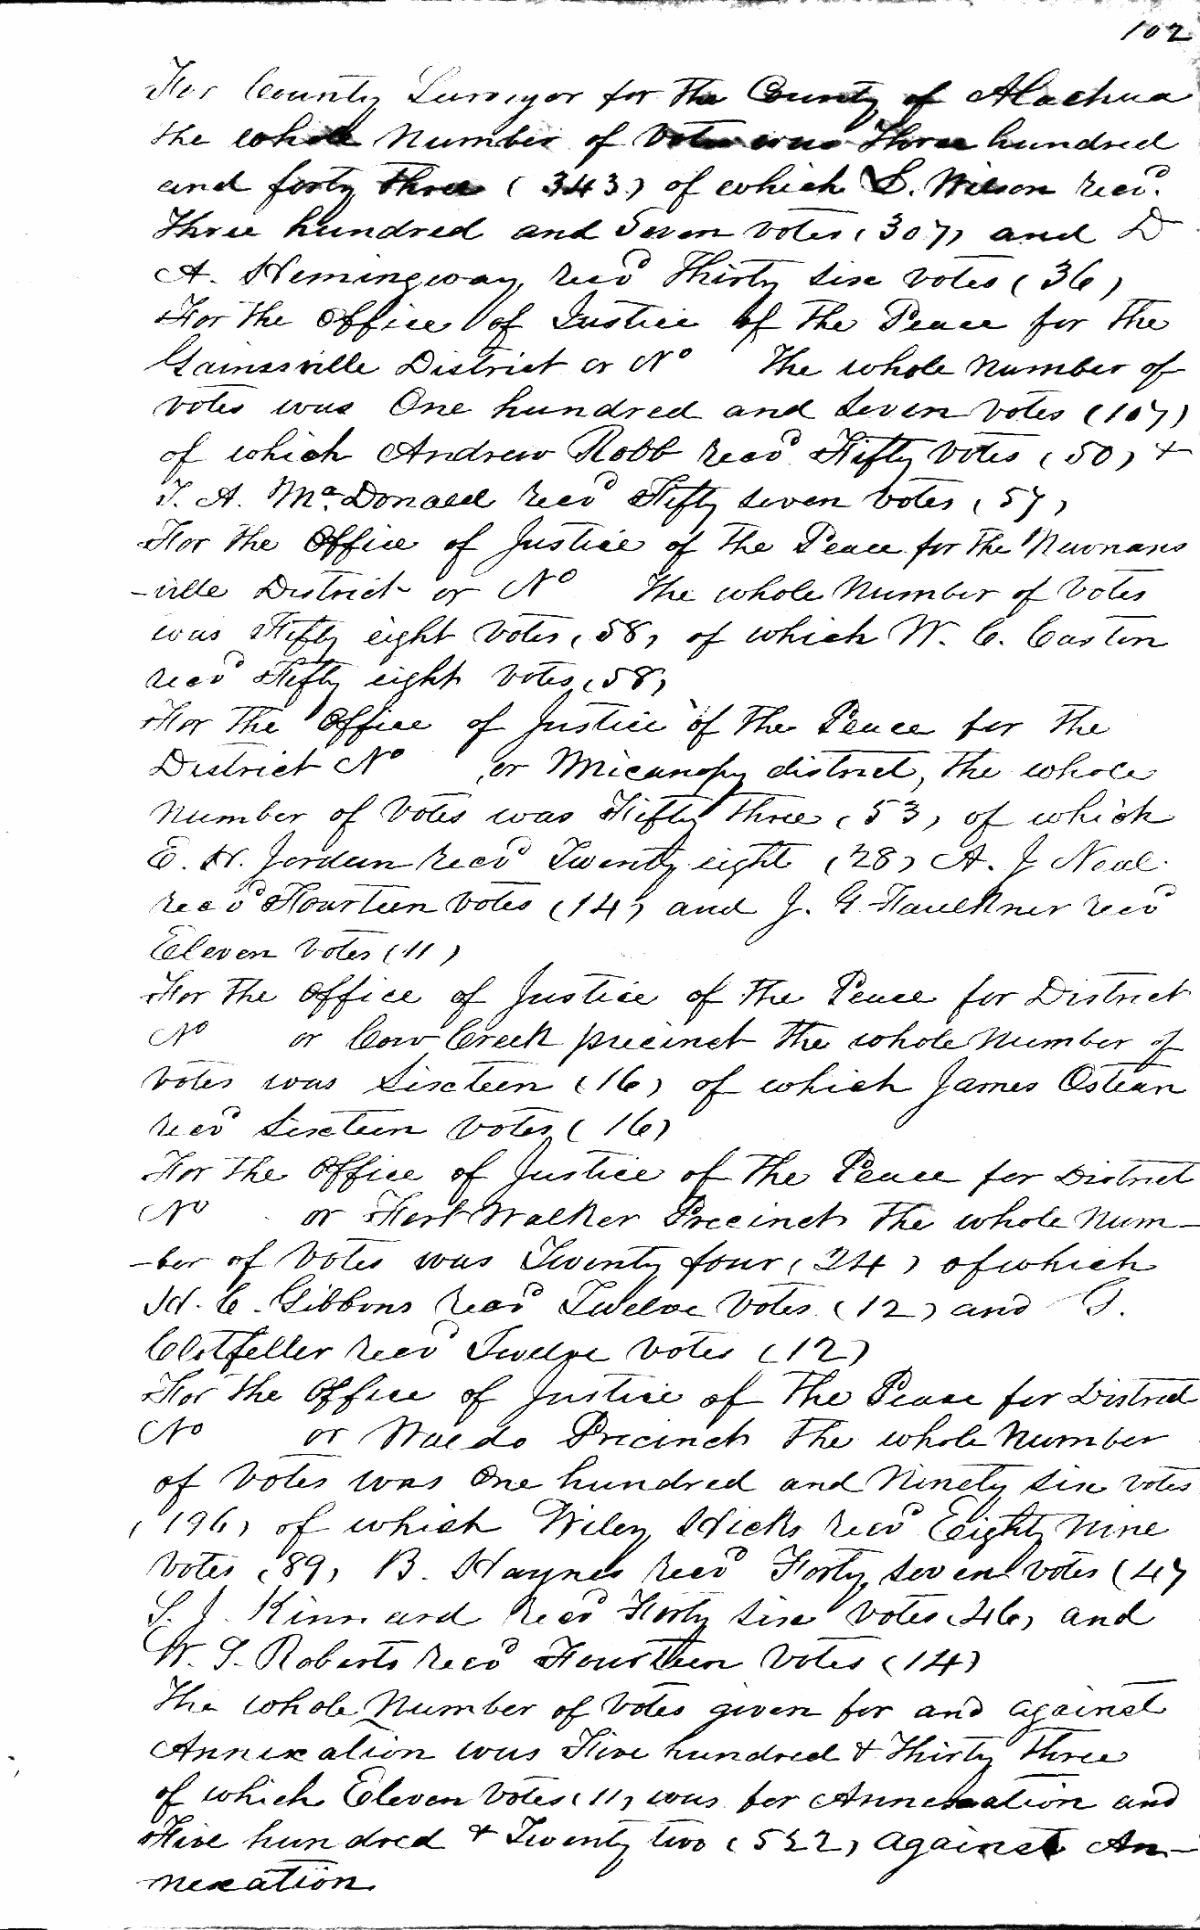 102
For County Surveyor for the County of Alachua
the whole Number of Votes was Three hundred
and forty three (343) of which S. Wilson recd.
Three hundred and Seven votes (307) and D
A. Hemingway, recd Thirty six votes (36)
For the Office of Justice of the Peace for the
Gainssville District or No The whole number of
votes was One hundred and Seven votes (107)
of which Andrew Robb recd Fifty Votes (50) +
T. A. McDonald recd Fifty seven votes (57)
For the Office of Justice of the Peace for the Newnans
-ville District or No The whole Number of Votes
was Fifty eight Votes (58) of which W. C. Caston
recd Fifty eight votes (58)
For the Office of Justice of the Peace for the
District No or Micanopy district, the whole
Number of Votes was Fifty three (53) of which
E. H. Jordan recd Twenty eight (28) A. J Neal
recd Fourteen Votes (14) and J. G. Faulkner recd
Eleven Votes (11)
For the Office of Justice of the Peace for District
No or Cow Creek precinct the whole Number of
Votes was Sixteen (16) of which James Ostean
recd Sixteen Votes (16)
For the Office of Justice of the Peace for District
No or Fort Walker Precinct the whole Num-
-ber of Votes was Twenty four (24) of which
H. C. Gibbons recd Twelve Votes (12) and G.
Clotfeller recd Twelve Votes (12)
For the Office of Justice of the Peace for District
No or Waldo Precinct The whole Number
of Votes was One hundred and Ninety six votes
(196) of which Wiley Hicks recd Eighty Nine
Votes (89) B. Haynes recd Forty seven votes (47
S. J. Kinnard recd Forty six votes (46) and
W. G. Roberts recd Fourteen Votes (14)
The whole Number of Votes given for and against
Annexation was Five hundred & Thirty three
of which Eleven Votes (11) was for Annexation and
Five hundred & Twenty two (522) against An-
nexation.